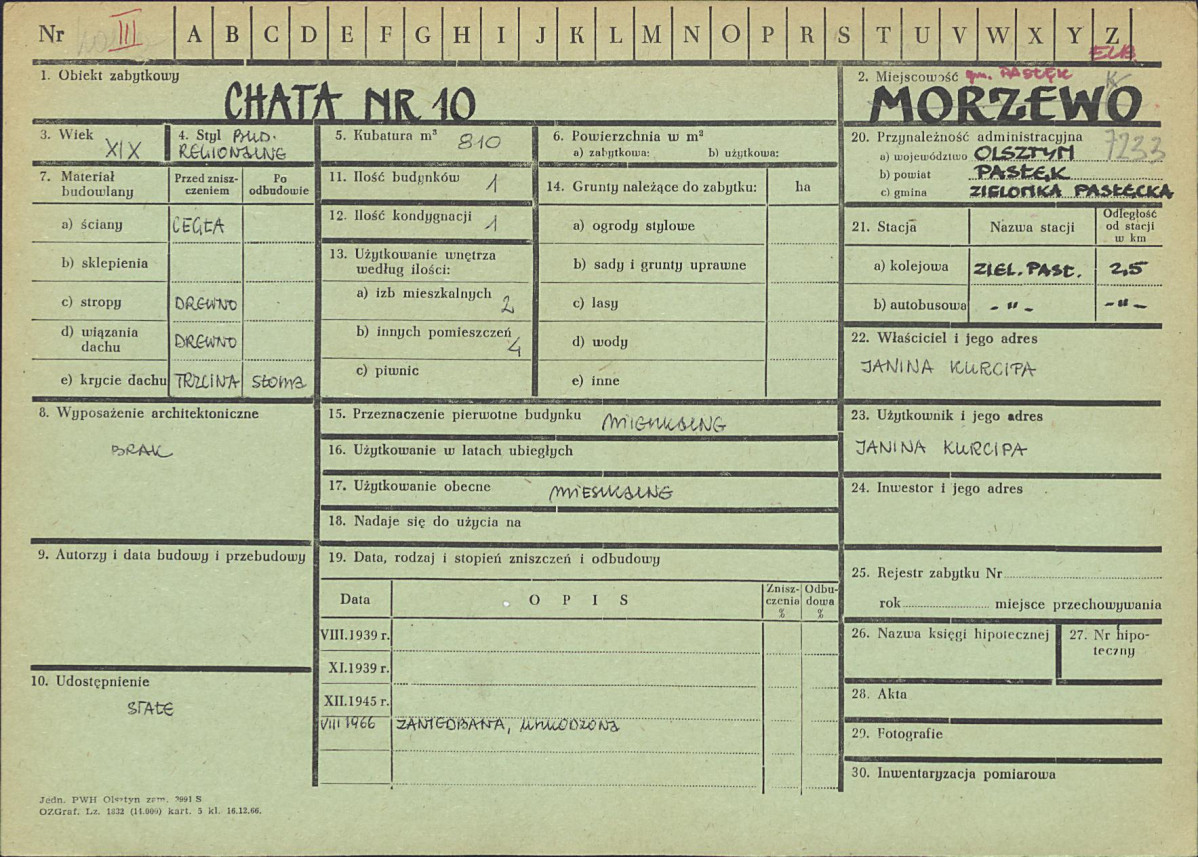 Nr III A B C D E F G H I J K L M N O P R S T U V W X Y Z
ELB.
1. Obiekt zabytkowy
CHATA NR 10
2. Miejscowość gm. PASŁĘK
MORZEWO
3. Wiek
XIX
4. Styl BUD.
REGIONALNE
5. Kubatura m³ 810
6. Powierzchnia w m²
a) zabytkowa: b) użytkowa:
20. Przynależność administracyjna 7233
a) województwo OLSZTYN
b) powiat PASŁĘK
c) gmina ZIELONKA PASŁĘCKA
7. Materiał budowlany
Przed znisz-
czeniem
Po
odbudowie
a) ściany CEGŁA
b) sklepienia
c) stropy DREWNO
d) wiązania
dachu DREWNO
e) krycie dachu TRZCINA SŁOMA
11. Ilość budynków 1
12. Ilość kondygnacji 1
13. Użytkowanie wnętrza
według ilości:
a) izb mieszkalnych 2
b) innych pomieszczeń 4
c) piwnic
14. Grunty należące do zabytku: ha
a) ogrody stylowe
b) sady i grunty uprawne
c) lasy
d) wody
e) inne
21. Stacja Nazwa stacji
Odległość
od stacji
w km
a) kolejowa ZIEL. PAST. 2,5
b) autobusowa - " - - " -
22. Właściciel i jego adres
JANINA KURCIPA
8. Wyposażenie architektoniczne
BRAK
15. Przeznaczenie pierwotne budynku MIESZKALNE
16. Użytkowanie w latach ubiegłych
17. Użytkowanie obecne MIESZKALNE
18. Nadaje się do użycia na
23. Użytkownik i jego adres
JANINA KURCIPA
24. Inwestor i jego adres
9. Autorzy i data budowy i przebudowy
19. Data, rodzaj i stopień zniszczeń i odbudowy
Data O P I S
Znisz-
czenia
%
Odbu-
dowa
%
VIII.1939 r.
XI.1939 r.
XII.1945 r.
VIII 1966 ZANIEDBANA, USZKODZONA
25. Rejestr zabytku Nr
rok miejsce przechowywania
26. Nazwa księgi hipotecznej
27. Nr hipo-
teczny
10. Udostępnienie
STAŁE
28. Akta
29. Fotografie
30. Inwentaryzacja pomiarowa
Jedn. PWH Olsztyn zam. 2991 S
OZGraf. Lz. 1832 (14.000) kart. 5 kl. 16.12.66.